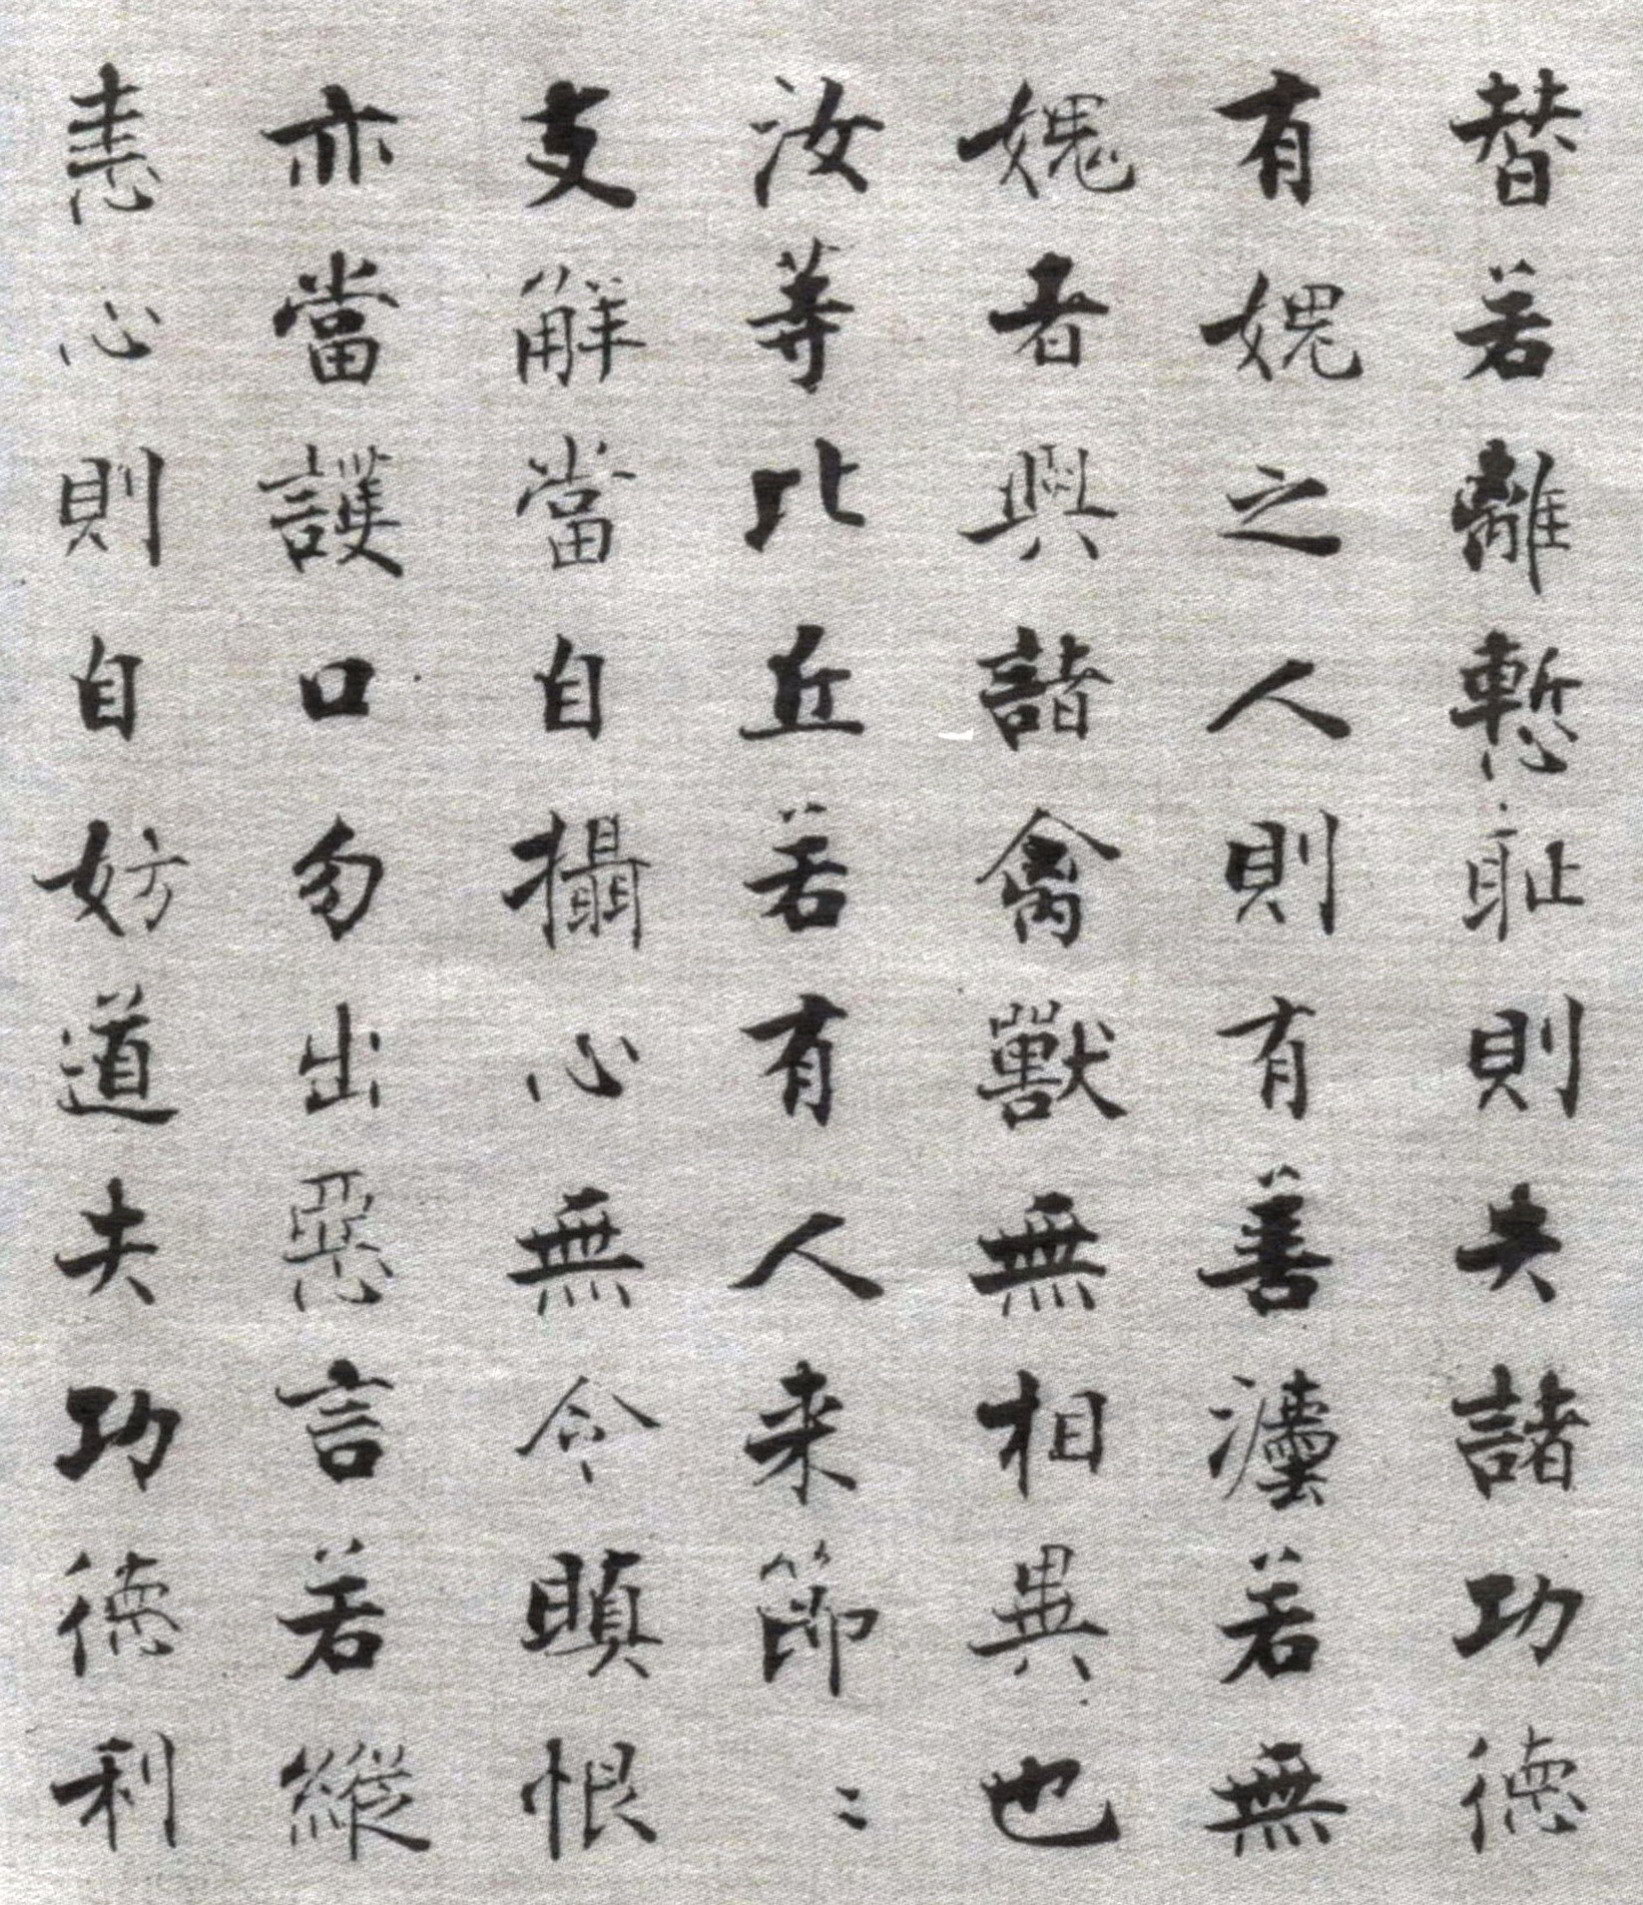 替若離慙耻則失諸功徳
有媿之人則有善灋若無
媿者與諸禽獸無相異也
汝等比丘若有人来節〻
支解當自攝心無令瞋恨
亦當護口勿出惡言若縱
恚心則自妨道失功徳利